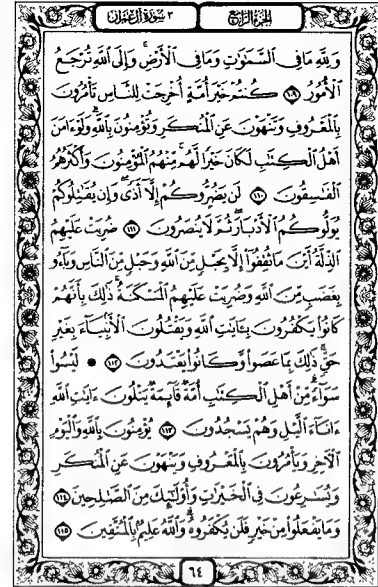 الجزء الرابع ٣ سورة آل عمران
وَلِلَّهِ مَا فِي السَّمَٰوَٰتِ وَمَا فِي الْأَرْضِ ۚ وَإِلَى اللَّهِ تُرْجَعُ
الْأُمُورُ ١٠٩ كُنتُمْ خَيْرَ أُمَّةٍ أُخْرِجَتْ لِلنَّاسِ تَأْمُرُونَ
بِالْمَعْرُوفِ وَتَنْهَوْنَ عَنِ الْمُنكَرِ وَتُؤْمِنُونَ بِاللَّهِ ۗ وَلَوْ ءَامَنَ
أَهْلُ الْكِتَٰبِ لَكَانَ خَيْرًا لَّهُم ۚ مِّنْهُمُ الْمُؤْمِنُونَ وَأَكْثَرُهُمُ
الْفَٰسِقُونَ ١١٠ لَن يَضُرُّوكُمْ إِلَّا أَذًى ۖ وَإِن يُقَٰتِلُوكُمْ
يُوَلُّوكُمُ الْأَدْبَارَ ثُمَّ لَا يُنصَرُونَ ١١١ ضُرِبَتْ عَلَيْهِمُ
الذِّلَّةُ أَيْنَ مَا ثُقِفُوا إِلَّا بِحَبْلٍ مِّنَ اللَّهِ وَحَبْلٍ مِّنَ النَّاسِ وَبَاءُو
بِغَضَبٍ مِّنَ اللَّهِ وَضُرِبَتْ عَلَيْهِمُ الْمَسْكَنَةُ ۚ ذَٰلِكَ بِأَنَّهُمْ
كَانُوا يَكْفُرُونَ بِـَٔايَٰتِ اللَّهِ وَيَقْتُلُونَ الْأَنۢبِيَاءَ بِغَيْرِ
حَقٍّ ۚ ذَٰلِكَ بِمَا عَصَوا وَّكَانُوا يَعْتَدُونَ ١١٢ ۞ لَيْسُوا
سَوَاءً ۗ مِّنْ أَهْلِ الْكِتَٰبِ أُمَّةٌ قَائِمَةٌ يَتْلُونَ ءَايَٰتِ اللَّهِ
ءَانَاءَ الَّيْلِ وَهُمْ يَسْجُدُونَ ١١٣ يُؤْمِنُونَ بِاللَّهِ وَالْيَوْمِ
الْءَاخِرِ وَيَأْمُرُونَ بِالْمَعْرُوفِ وَيَنْهَوْنَ عَنِ الْمُنكَرِ
وَيُسَٰرِعُونَ فِي الْخَيْرَٰتِ وَأُولَٰئِكَ مِنَ الصَّٰلِحِينَ ١١٤
وَمَا يَفْعَلُوا مِنْ خَيْرٍ فَلَن يُكْفَرُوهُ ۗ وَاللَّهُ عَلِيمٌۢ بِالْمُتَّقِينَ ١١٥
٦٤